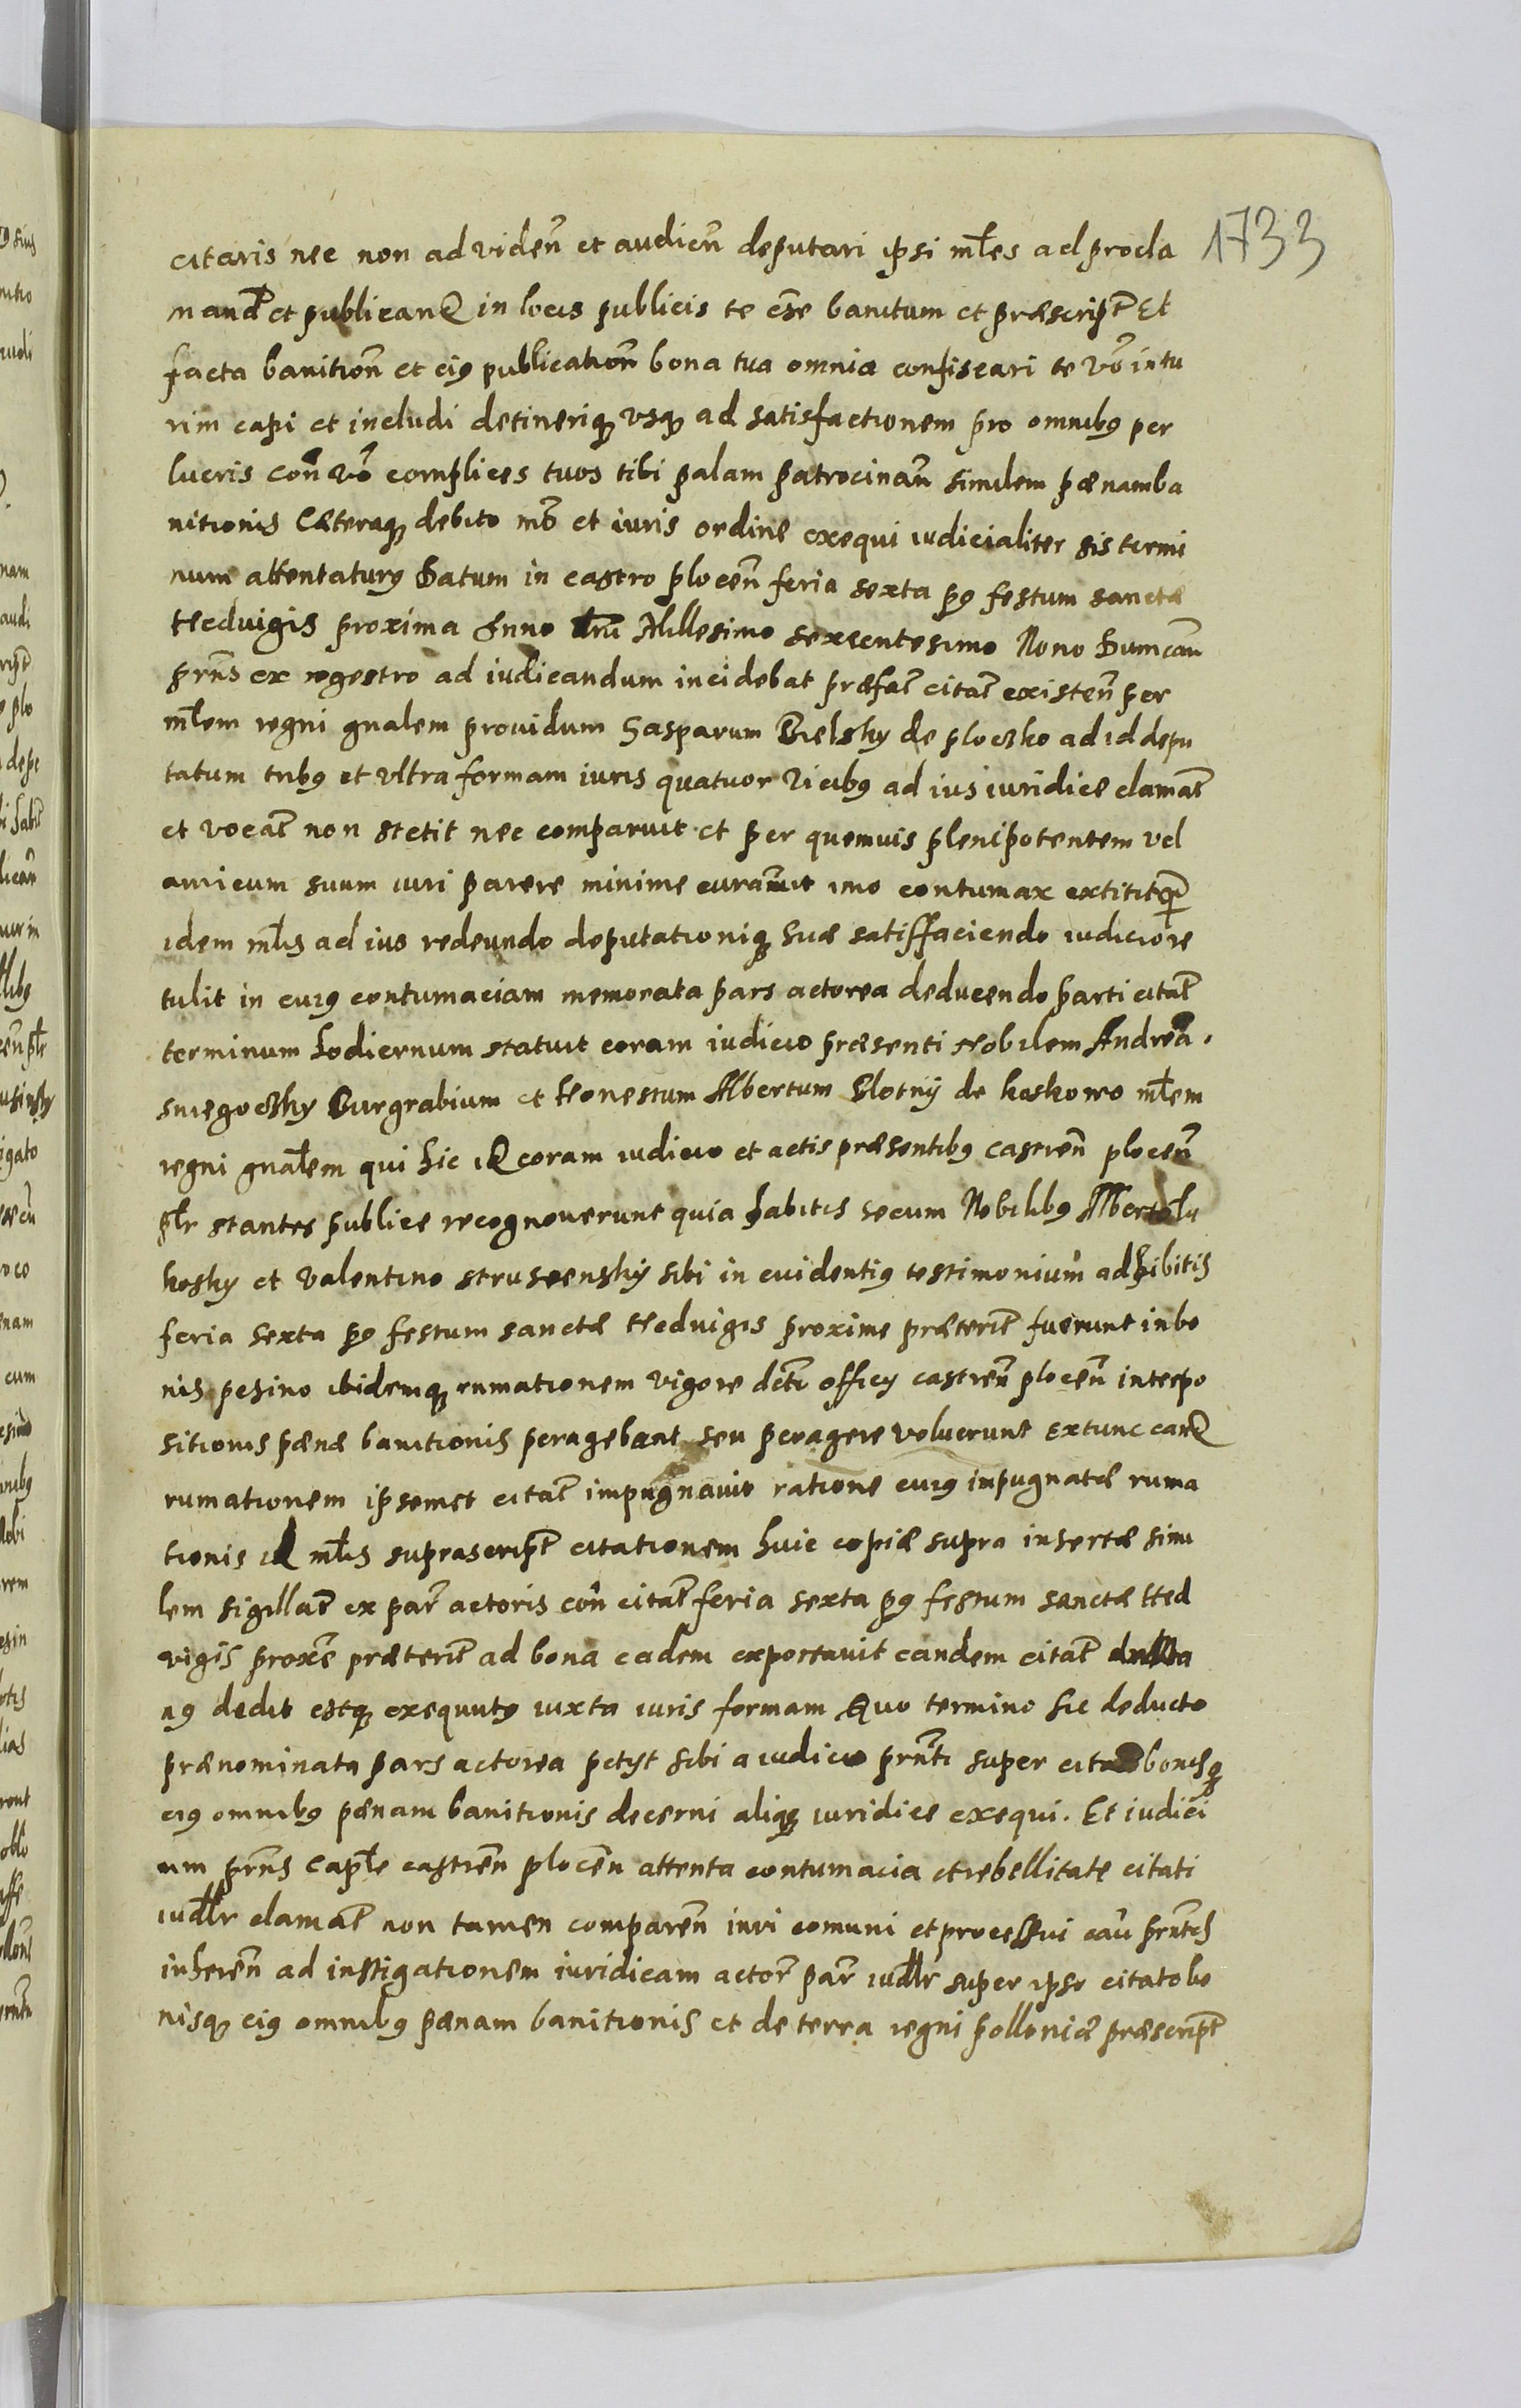 1733
citaris nec non ad videñ et audieñ deputari ipsi mles ad procla
mand et publicand in locis publicis te ese banitum et præscript Et
facta banition et eius publication bona tua omnia confiscari te vo intu
rim capi et includi detinerique vsque ad satisfactionem pro omnibus per
lucris con vo complices tuos tibi palam patrocinan similem pænam ba
nitionis Cæteraque debito mo et iuris ordine exequi iudicialiter sis termi
num attentaturus Datum in castro plocen feria sexta po festum sanctæ
Heduigis proxima Anno dni Millesimo sexcentesimo Nono Dum cau
prns ex regestro ad iudicandum incidebat præfat citat existen per
mlem regni gnalem prouidum Gasparum Bielsky de ploczko ad id depu
tatum tribus et vltra formam iuris quatuor vicibus ad ius iuridice clamat
et vocat non stetit nec comparuit et per quemuis plenipotentem vel
amicum suum iuri parere minime curauit imo contumax extitit qr
idem mlis ad ius redeundo deputationique suæ satisfaciendo iudicio re
tulit in cuius contumaciam memorata pars actorea deducendo parti citat
terminum hodiernum statuit coram iudicio præsenti Nobilem Andrea
sniegoczky Burgrabium et Honestum Albertum Plotny de koskowo mlem
regni gnalem qui hic id coram iudicio et actis præsentibus castren plocen
plr stantes publice recognouerunt quia habitis secum Nobilibus Alberto lu
kosky et Valentino strusczensky sibi in euidentius testimonium adhibitis
feria sexta po festum sanctæ Heduigis proxime præterit fuerunt in bo
nis pesino ibidemque rumationem vigore dcti officy castren plocen interpo
sitionis pænæ banitionis peragebant seu peragere voluerunt extunc eand
rumationem ipsemet citat impugnauit ratione cuius inpugnatæ ruma
tionis id mlis suprascript citationem huic copiæ supra insertæ simi
lem sigillat ex par actoris con citat feria sexta po festum sanctæ Hed
vigis proxe præterit ad bona eadem exportauit eandem citat
dedit estque exequutus iuxta iuris formam Quo termino sic deducto
prænominata pars actorea petyt sibi a iudicio prnti super citato bonisque
eius omnibus pænam banitionis decerni aliaque iuridice exequi. Et iudici
um prns Caple castren plocen attenta contumacia et rebellitate citati
iudlr clamat non tamen comparen iuri comuni et processui cau prntis
inheren ad instigationem iuridicam actor par iudlr super ipso citato bo
nisque eius omnibus pænam banitionis et de terra regni polloniæ præscript